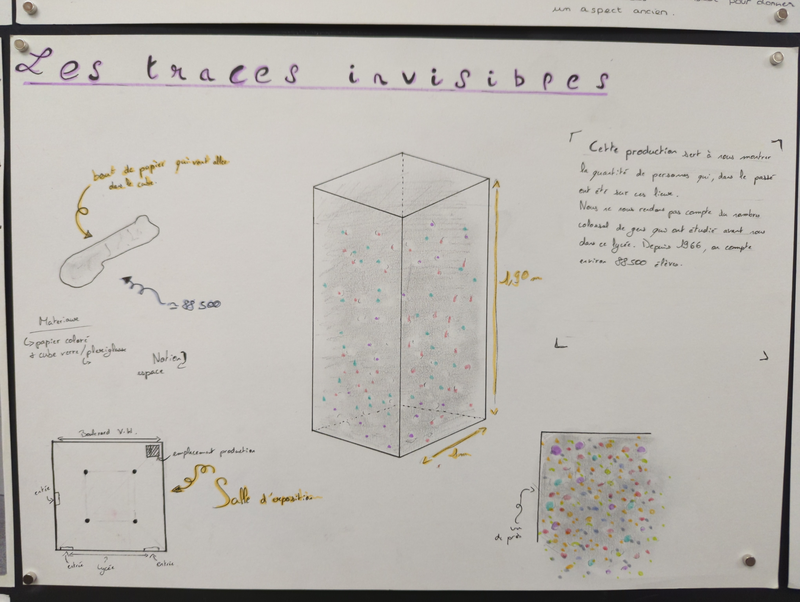 pour donner
un aspect ancien.
Les traces invisibles
bout de papier qui veut aller
dans le cube.
≈ 88 500
Materiaux
↳ papier coloré
cube verre/plexiglass
Notion
espace
1,90 m
1m
Cette production sert à nous montrer
la quantité de personnes qui, dans le passé
ont été sur ces lieux.
Nous ne nous rendons pas compte du nombre
colossal de gens qui ont étudié avant nous
dans ce lycée. Depuis 1966, on compte
environ 88 500 élèves.
Boulevard V.H.
emplacement production
entrée
Salle d'exposition
entrée
lycée
entrée
vu
de près